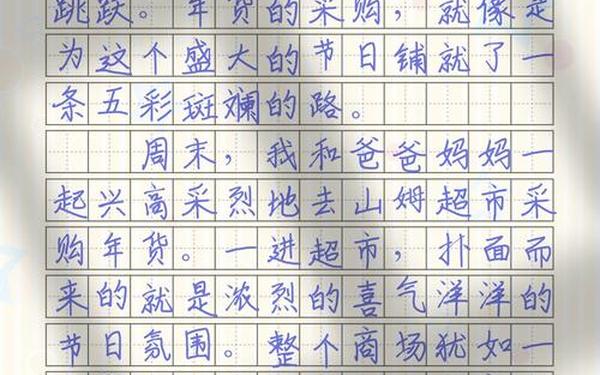 跳跃。年货的采购，就像是
为这个盛大的节日铺就了一
条五彩斑斓的路。
周末，我和爸爸妈妈一
起兴高采烈地去山姆超市采
购年货。一进超市，扑面而
来的就是浓烈的喜气洋洋的
节日氛围。整个商场犹如一